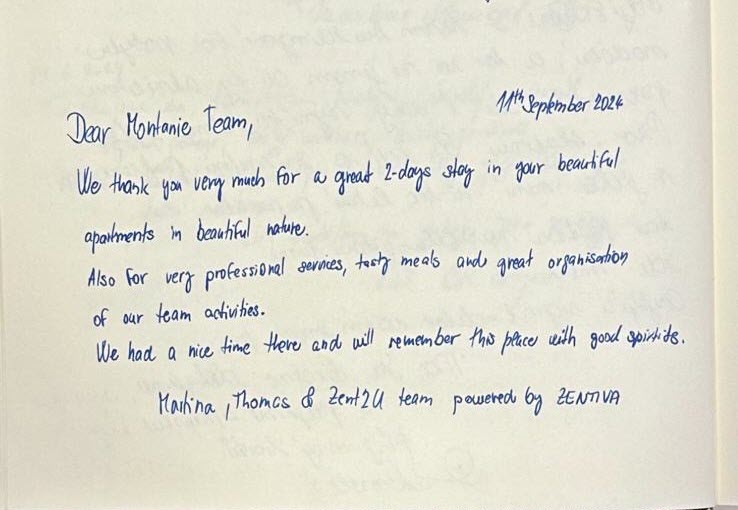 11th September 2024
Dear Montanie Team,
We thank you very much for a great 2-days stay in your beautiful
apartments in beautiful nature.
Also for very professional services, tasty meals and great organisation
of our team activities.
We had a nice time there and will remember this place with good spirits.
Martina, Thomas & Zent2U team powered by ZENTIVA